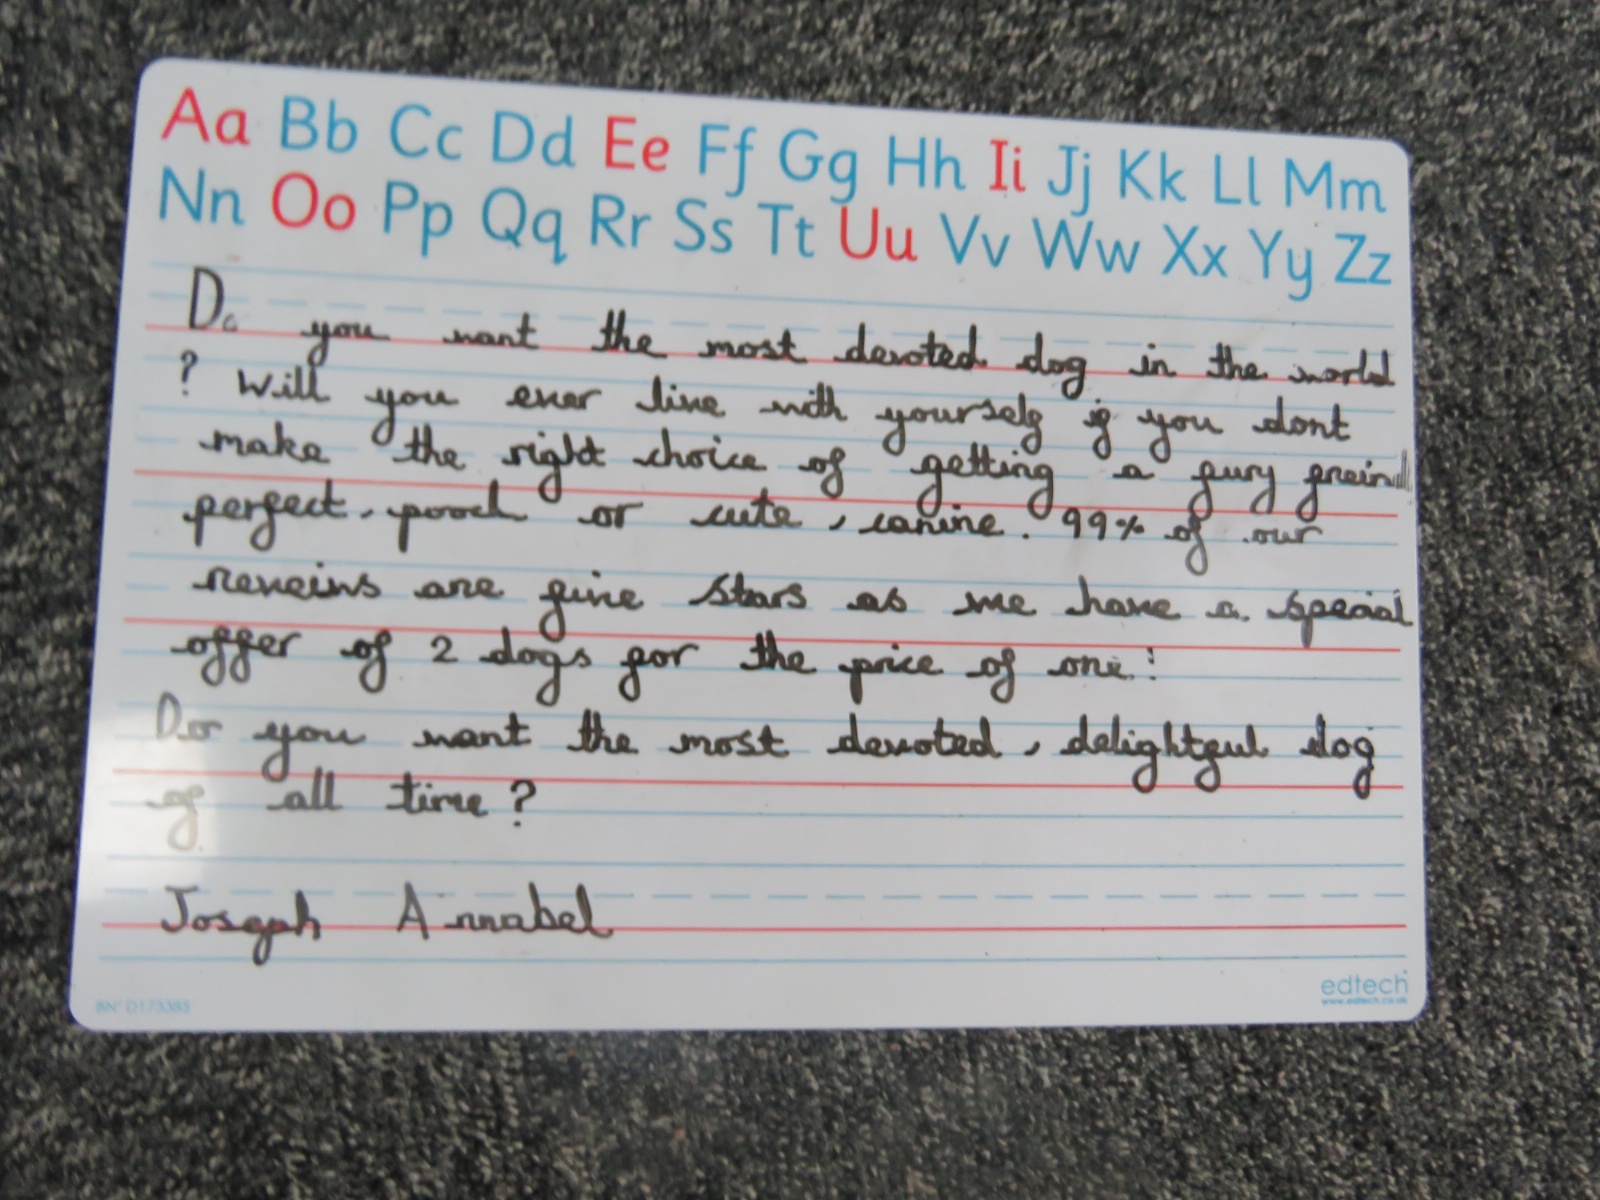 Aa Bb Cc Dd Ee Ff Gg Hh Ii Jj Kk Ll Mm
Nn Oo Pp Qq Rr Ss Tt Uu Vv Ww Xx Yy Zz
Do you want the most devoted dog in the world
? Will you ever live with yourself if you dont
make the right choice of getting a fury freind
perfect, pooch or cute, canine. 99% of our
reveiws are five stars as we have a special
offer of 2 dogs for the price of one!
Do you want the most devoted, delightful dog
of all time?
Joseph Annabel
edtech
www.edtech.co.uk